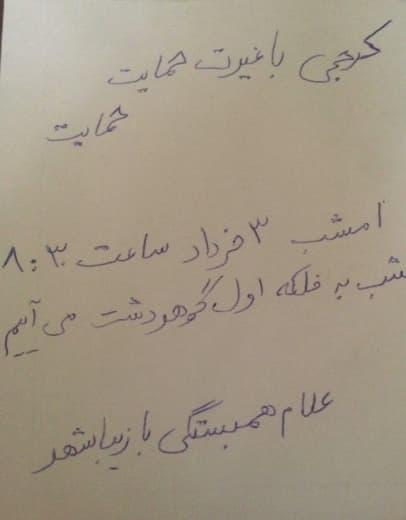 کرجی با غیرت حمایت
حمایت
امشب ۳ خرداد ساعت ۸:۳۰
شب به فلکه اول گوهردشت می آییم
علام همبستگی با زیباشهر